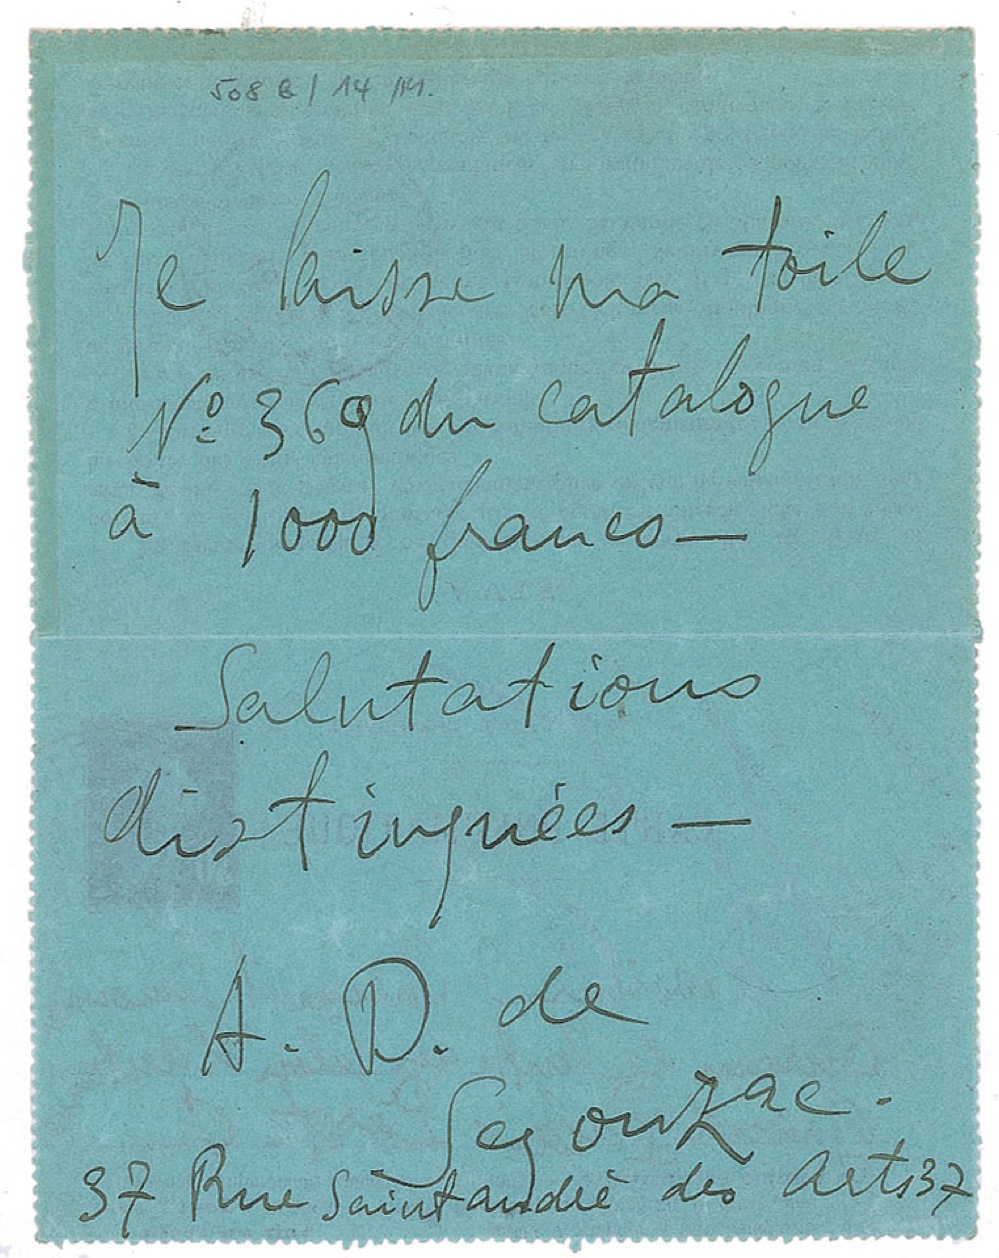 508 B / 14 /M.
Je laisse ma toile
Nº 369 du catalogue
à 1000 francs —
Salutations
distinguées —
A. D. de
Segonzac.
37 Rue Saint andré des Arts 37